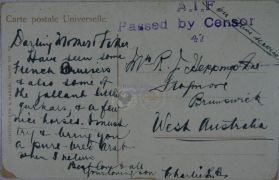 Carte postale Universelle.
A.I.F
Passed by Censor
Darling Mother & Father
Have seen some
French Cruisers
& also some of
the gallant little
Gurkhas, & a few
nice horses. I must
try & bring you
a pure bred Arab
when I return
Best love to all
Your loving son Charlie
Mrs R. J.
Brunswick
West Australia